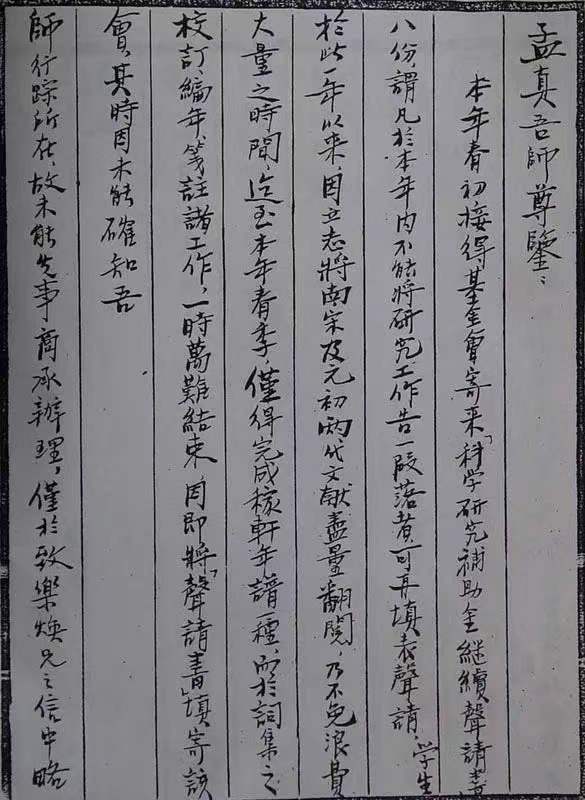 孟真吾師尊鑒：
本年春初接得基金會寄來「科学研究補助金継續聲請書」
八份，謂凡於本年内不能將研究工作告一段落者，可再填表聲請。学生
於此一年以来，因立志將南宋及元初两代文献盡量翻閲，乃不免浪費
大量之時間，迄至本年春季，僅得完成稼軒年譜一種，而於詞集之
校訂、編年、箋註諸工作，一時萬難結束，因即將「聲請書」填寄該
會，其時因未能確知吾
師行踪所在，故未能先事商承辦理，僅於致樂焕兄之信中略